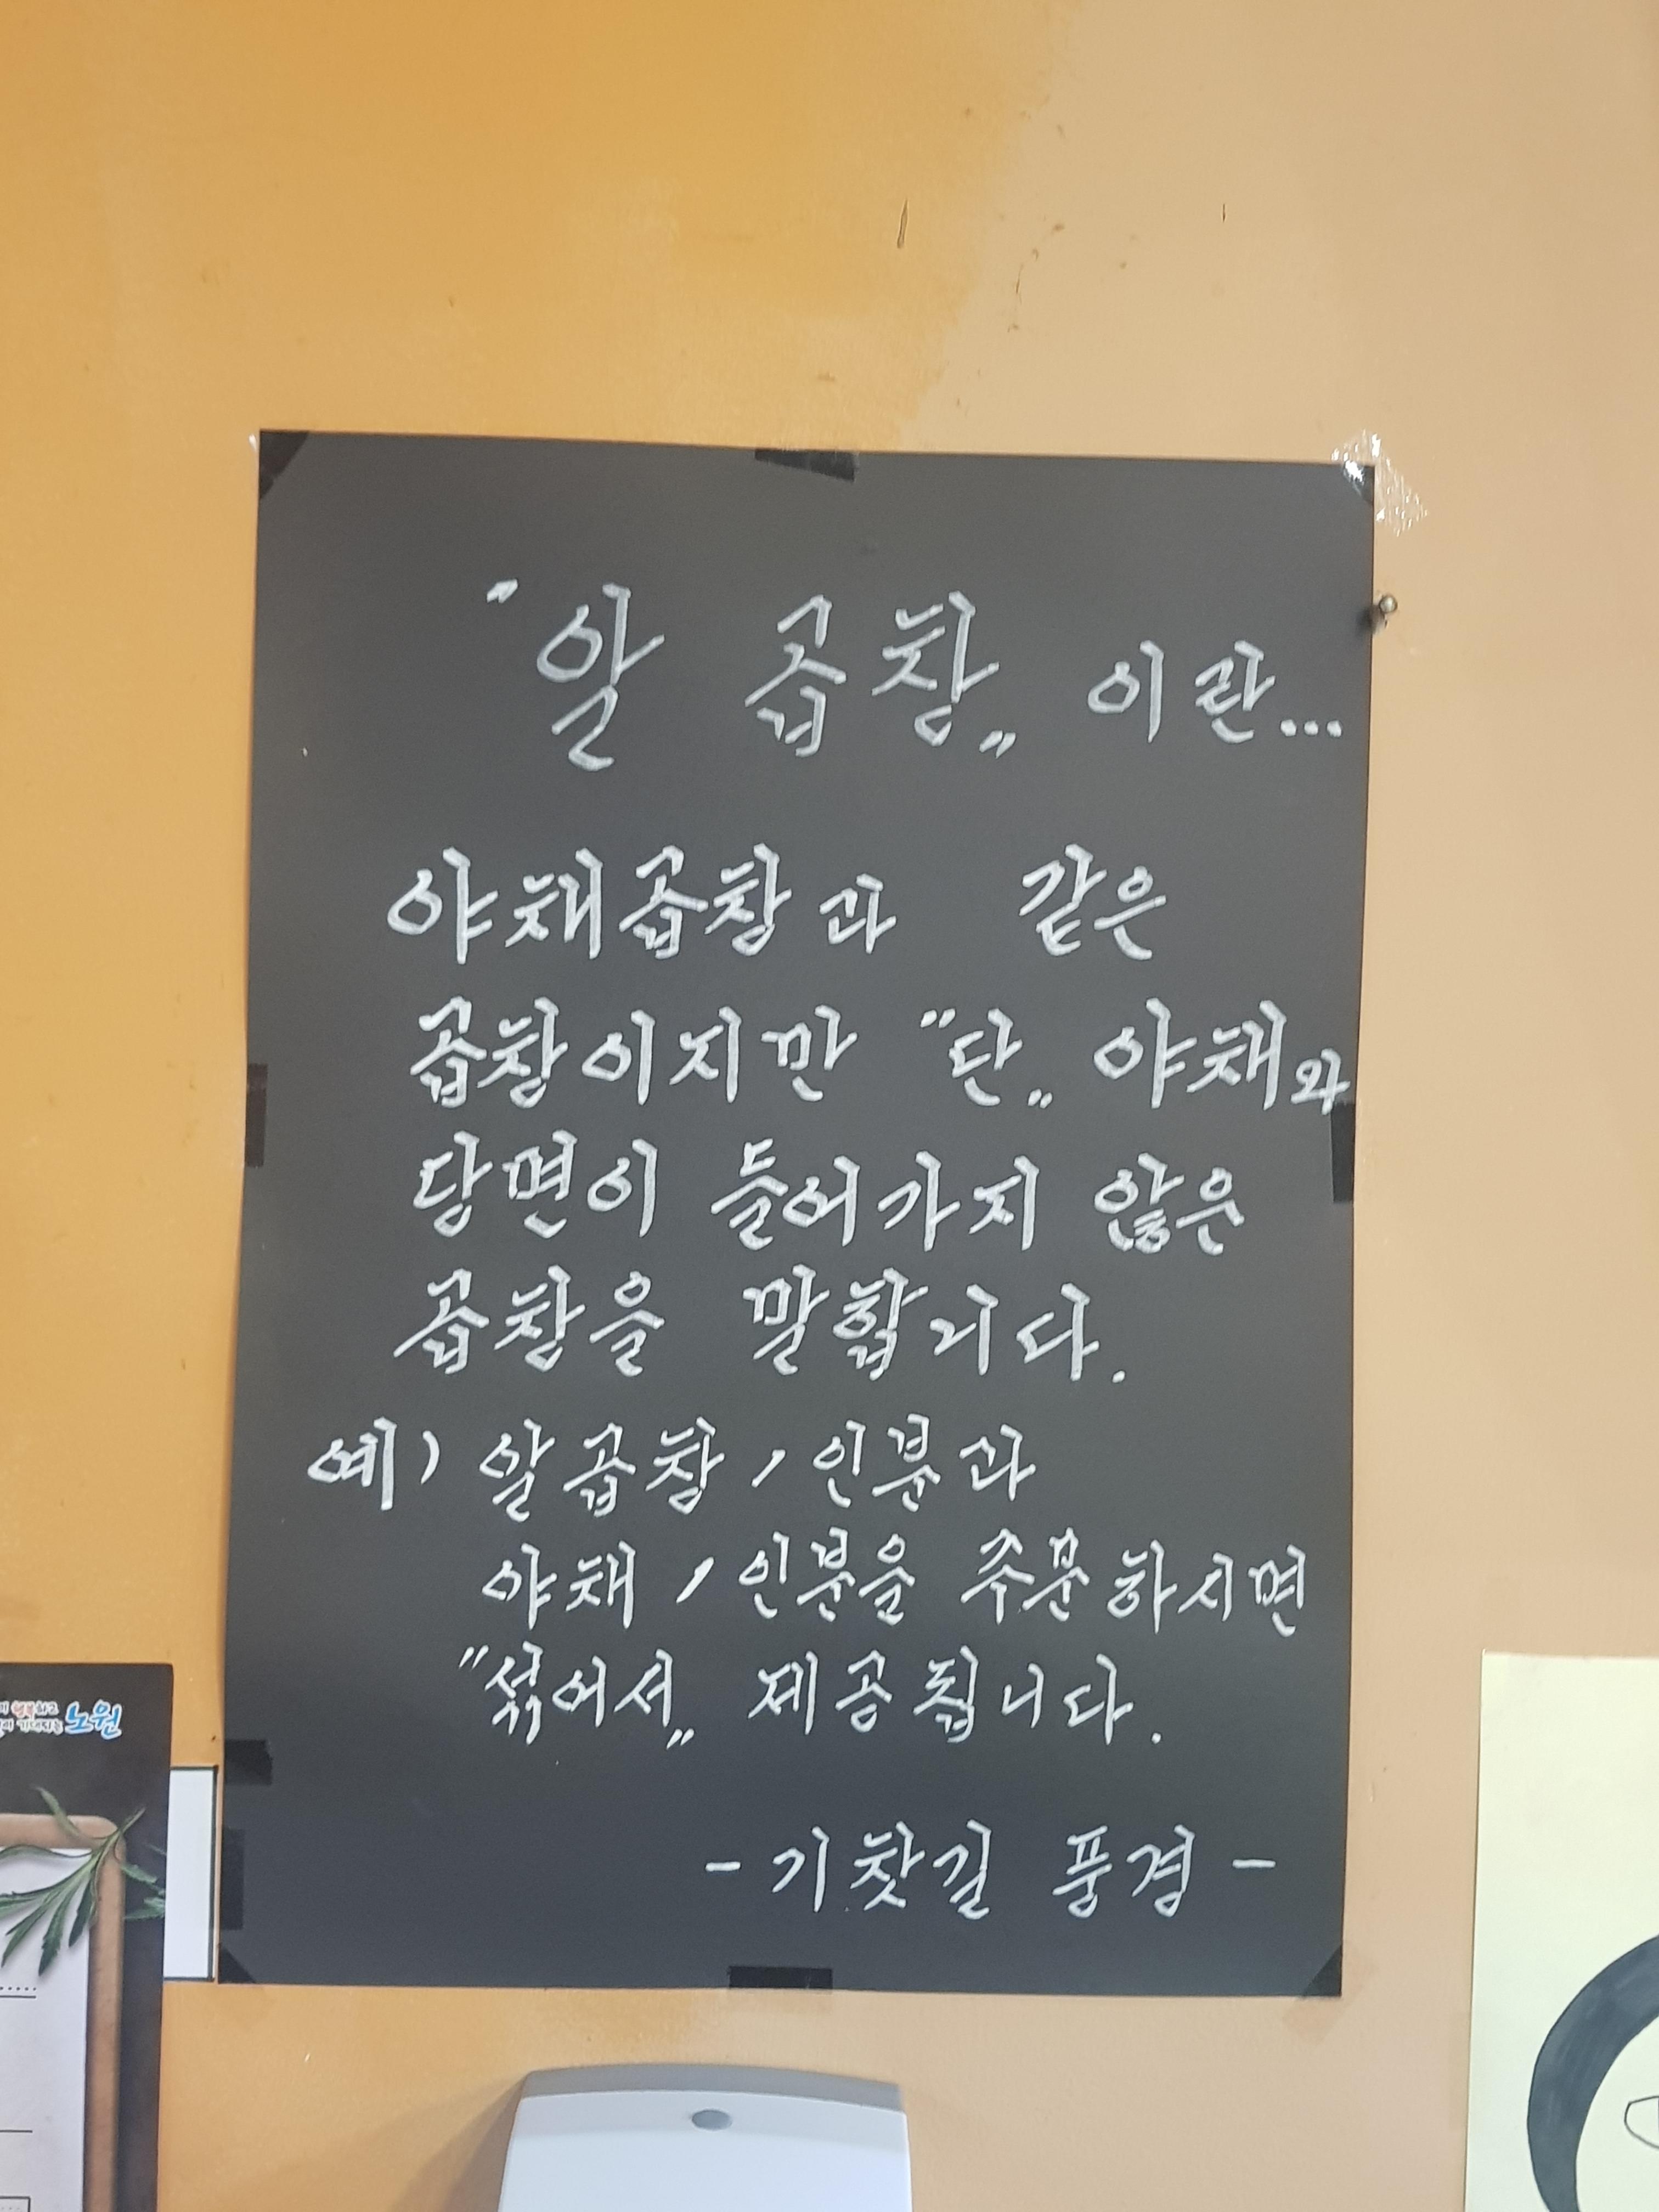 "알 곱창" 이란...
야채곱창과 같은
곱창이지만 "단" 야채와
당면이 들어가지 않은
곱창을 말합니다.
예) 알곱창 1인분과
야채 1인분을 주문하시면
"섞어서" 제공됩니다.
- 기찻길 풍경 -
행복하고
노원